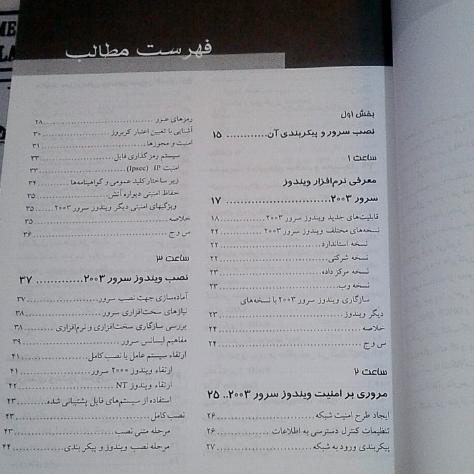 فهرست مطالب
بخش اول
نصب سرور و پیکربندی آن............ ۱۵
ساعت ۱
معرفی نرم‌افزار ویندوز
سرور ۲۰۰۳............................ ۱۷
قابلیت‌های جدید ویندوز سرور ۲۰۰۳............ ۱۸
نسخه‌های مختلف ویندوز سرور ۲۰۰۳............ ۲۲
نسخه استاندارد............ ۲۲
نسخه شرکتی............ ۲۲
نسخه مرکز داده............ ۲۳
نسخه وب............ ۲۳
سازگاری ویندوز سرور ۲۰۰۳ با نسخه‌های
دیگر ویندوز............ ۲۳
خلاصه............ ۲۴
س و ج............ ۲۴
ساعت ۲
مروری بر امنیت ویندوز سرور ۲۰۰۳.. ۲۵
ایجاد طرح امنیت شبکه............ ۲۶
تنظیمات کنترل دسترسی به اطلاعات............ ۲۶
پیکربندی ورود به شبکه............ ۲۷
رمزهای عبور............ ۲۸
آشنایی با تعیین اعتبار کربروز............ ۳۰
امنیت و مجوزها............ ۳۱
سیستم رمزگذاری فایل............ ۳۳
امنیت IP (Ipsec)............ ۳۳
زیر ساختار کلید عمومی و گواهینامه‌ها............ ۳۴
حفاظ امنیتی دیواره آتش............ ۳۵
ویژگیهای امنیتی دیگر ویندوز سرور ۲۰۰۳............ ۳۵
خلاصه............ ۳۵
س و ج............ ۳۶
ساعت ۳
نصب ویندوز سرور ۲۰۰۳............ ۳۷
آماده‌سازی جهت نصب سرور............ ۳۷
نیازهای سخت‌افزاری سرور............ ۳۸
بررسی سازگاری سخت‌افزاری و نرم‌افزاری............ ۳۸
مفاهیم لیسانس سرور............ ۳۹
ارتقاء سیستم عامل یا نصب کامل............ ۴۱
ارتقاء ویندوز ۲۰۰۰ سرور............ ۴۱
ارتقاء ویندوز NT............ ۴۲
استفاده از سیستم‌های فایل پشتیبانی شده............ ۴۳
نصب کامل............ ۴۳
مرحله متنی نصب............ ۴۳
مرحله نصب ویندوز و پیکربندی............ ۴۴